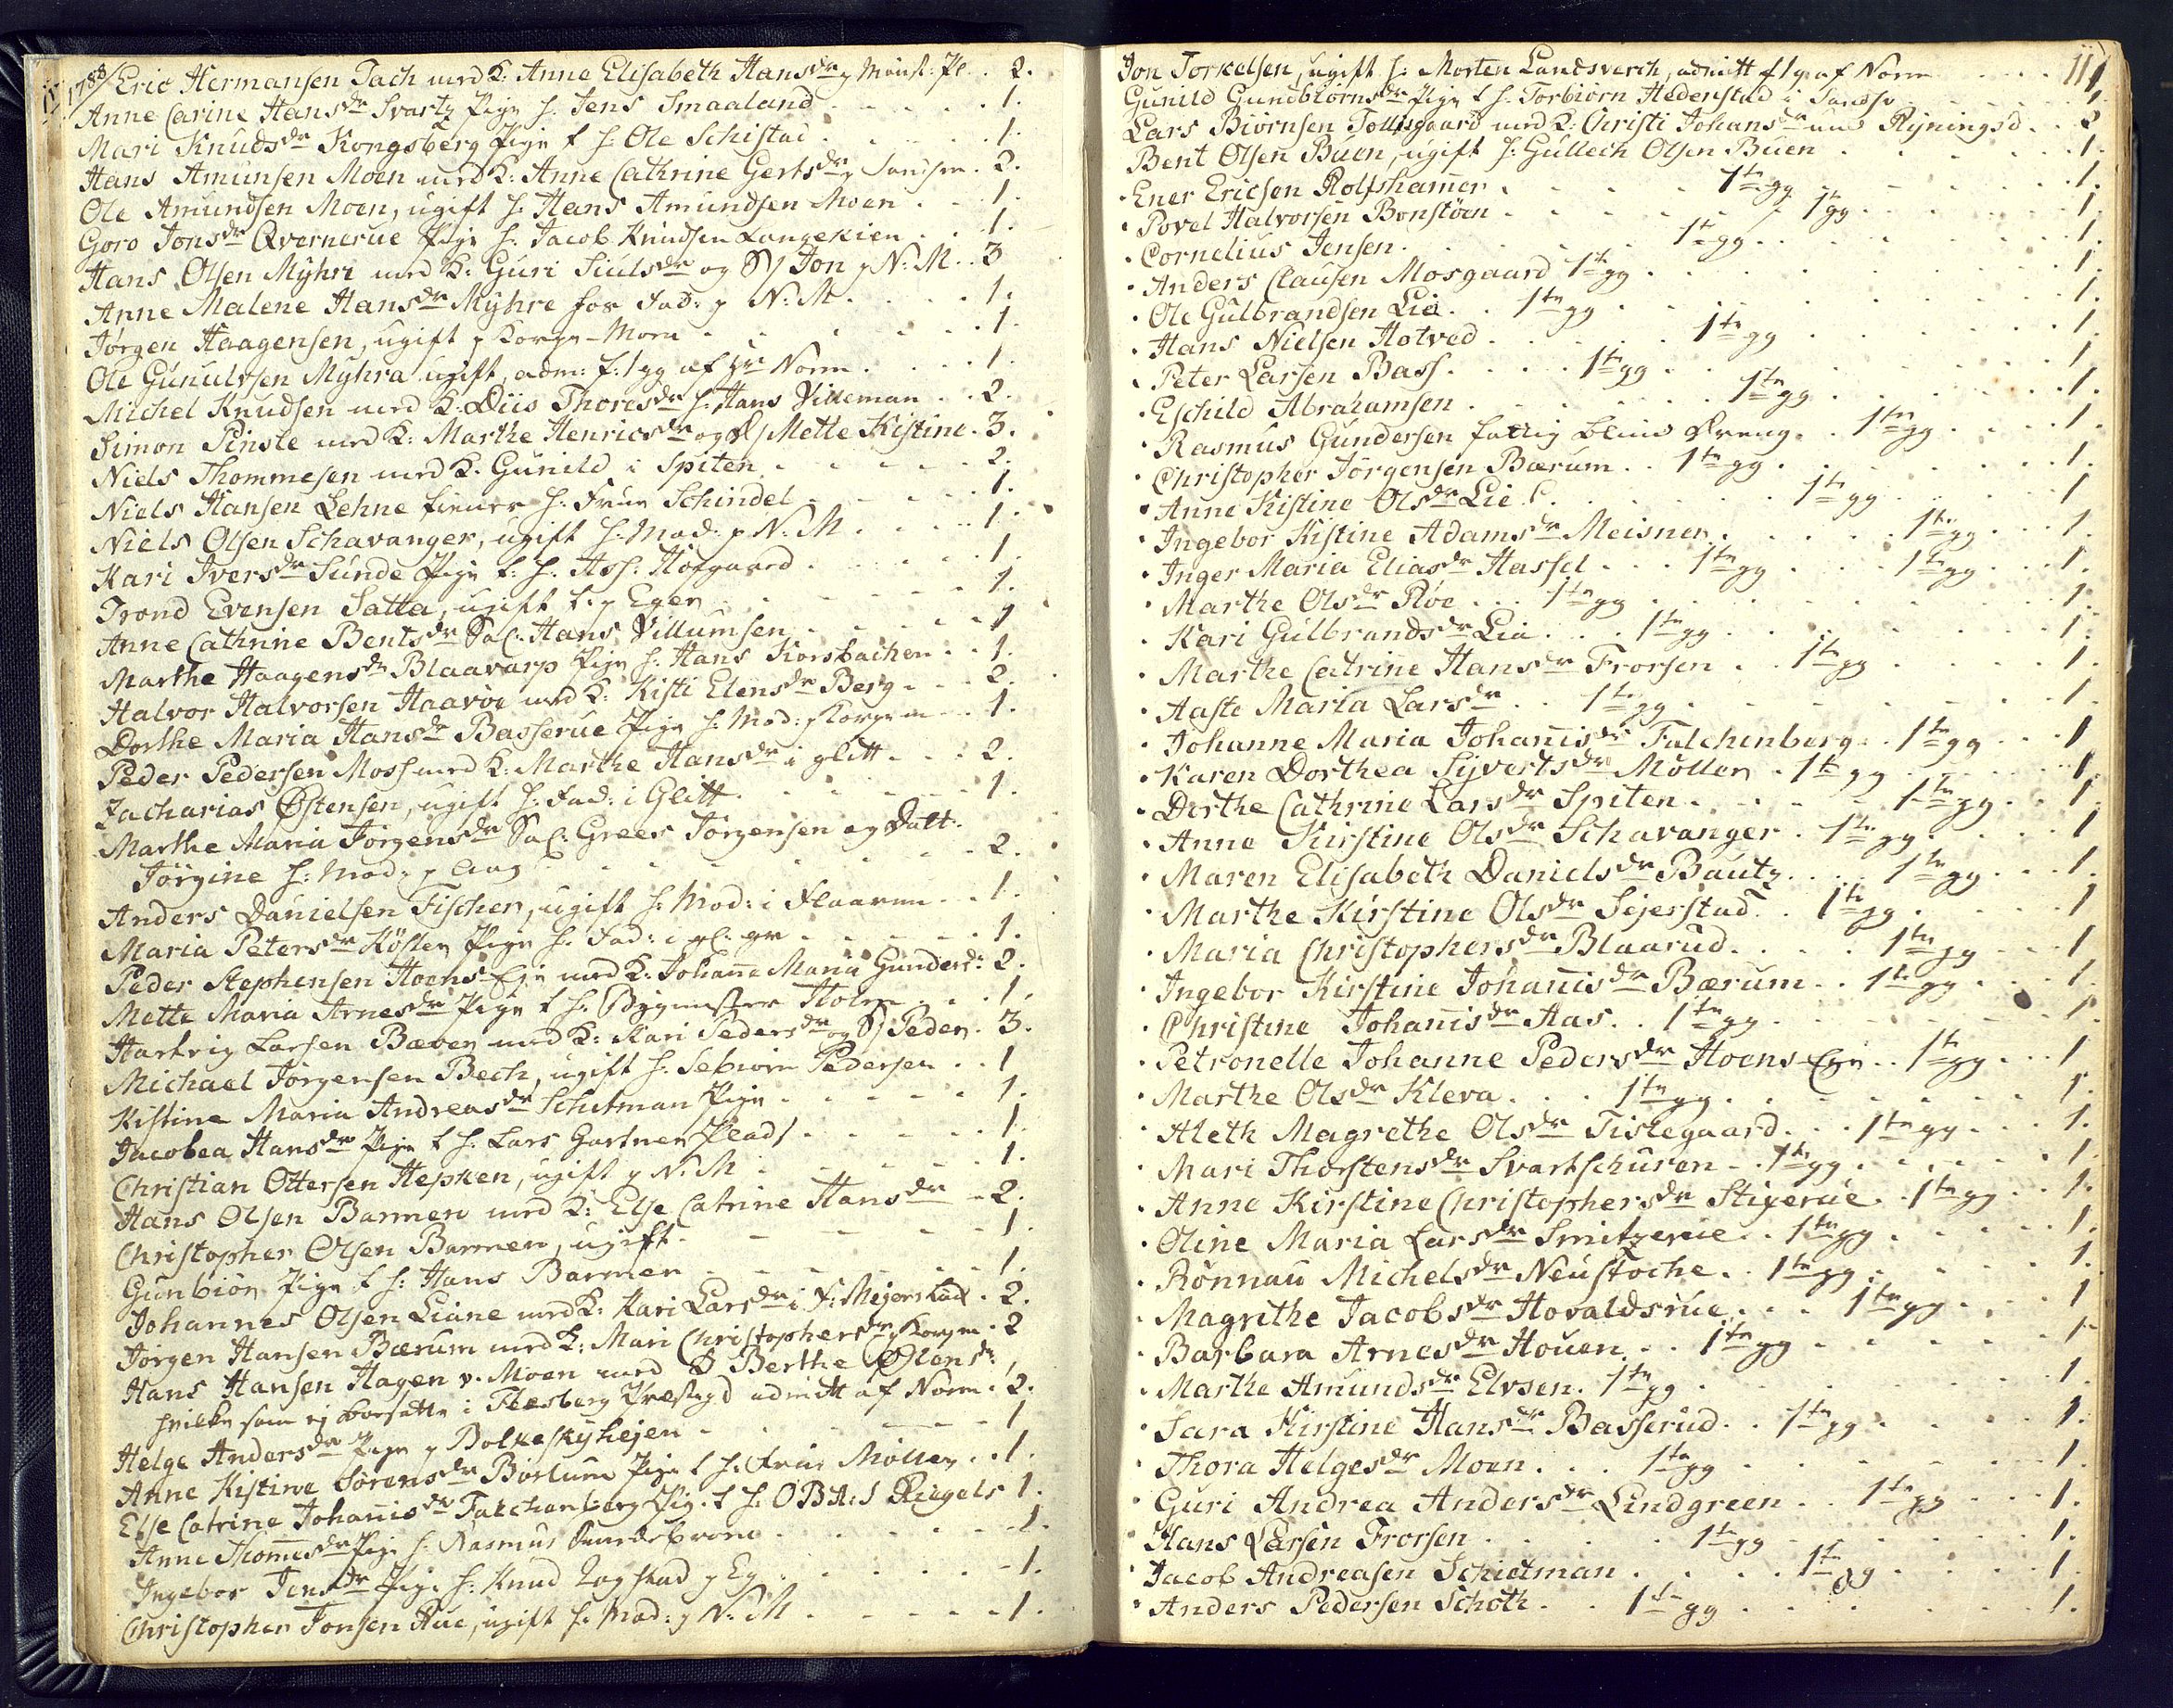 1788 Eric Hermansen Tach med K: Anne Elisabeth Hansdr p Mÿnst: Pl. 2.
Anne Carine Hansdr Svartz Pige h. Jens Smaaland 1.
Mari Knudsdr Kongsberg Pige t h: Ole Schistad 1.
Hans Amunsen Moen med K: Anne Cathrine Gertsdr p Sandsv. 2.
Ole Amundsen Moen, ugift h. Hans Amundsen Moen 1.
Goro Jonsdr Qvernerue Pige h. Jacob Knudsen Langekien 1.
Hans Olsen Mÿhre med K: Guri Siulsdr og S/ Jon p N: M. 3
Anne Malene Hansdr Mÿhre hos Fad: p N: M 1.
Jörgen Haagensen, ugift p Korge-Moen 1
Ole Gunulvsen Mÿhra ugift, adm: f: 1 gg af Hr Norm 1.
Michel Knudsen med K: Diis Thoresdr h. Hans Villeman 2.
Simon Pinste med K: Marthe Henricsdr og D/ Mette Kistine 3.
Niels Thommesen med K. Gunild i Spiten 2.
Niels Hansen Lehne tiener h. Frue Schindel 1.
Niels Olsen Schavanger, ugift h. Mad: p N: M 1.
Kari Iversdr Sunde Pige t: h. Ass. Hofgaard 1.
Trond Evensen Satta, ugift t. p Eger 1.
Anne Cathrine Bentsdr Sal: Hans Villumsen 1
Marthe Haagensdr Blaavarp Pige h. Hans Korsbachen 1.
Halvor Halvorsen Haavoe med K: Kisti Elensdr Berg 2.
Dorthe Maria Hansdr Basserue Pige h. Mod: p Korgem 1.
Peder Pedersen Moss med K: Marthe Hansdr i glitt 2.
Zacharias Østensen, ugift h. Fad: i Glitt 1.
Marthe Maria Jörgensdr Sal: Grees Jörgensen og Datt:
Jörgine h: Mod: p Aag 2.
Anders Danielsen Fischer, ugift h. Mod: i Flaaren 1.
Maria Petersdr Kösler Pige h. Fad: i gl: gr 1.
Peder Stephensen Hoens-Eje med K: Johanne Maria Gundersdr 2.
Mette Maria Arnesdr Pige t h. Bygmester Holm 1.
Hartvig Larsen Bæver med K: Kari Pedersdr og S/ Peder 3.
Michael Jörgensen Bech, ugift h. Sebiörn Pedersen 1
Kistine Maria Andreasdr Schitman Pige 1.
Jacobea Hansdr Pige t h. Lars Gartner Plads 1.
Christian Ottersen Hepken, ugift p N: M 1.
Hans Olsen Barmen med K: Else Catrine Hansdr 2.
Christopher Olsen Barmen, ugift 1.
Gunbiör Pige t h: Hans Barmen 1.
Johannes Olsen Liane med K: Kari Larsdr i F: Mejerstad 2.
Jörgen Hansen Bærum med K: Mari Christophersdr p Korgm 2
Hans Hansen Hagen v. Moen med K Berthe Olensdr
hvilke som ej boesatte i Flesberg Præstegd admitt af Norm. 2.
Helge Andersdr Pige p Bolkeskÿhejen 1
Anne Kistine Sörensdr Börlum Pige t h. Frue Möller 1.
Else Catrine Johannisdr Falchenberg Pig. t h: OBA: S Riegels 1.
Anne Thomesdr Pige h. Rasmus 1.
Ingebor Jensdr Pige h: Knud Logstad p Eg 1.
Christopher Jonsen Rue, ugift h. Mod: p N: M 1.
Jon Torkelsen, ugift h: Morten Landsverch, admitt f 1 g af Norm 1
111
Gunild Gunbiörnsdr Pige t h. Torbiörn Hedenstad i Sandsv 1
Lars Biörnsen Tollefsgaard med K: Christi Johansdr 2
Bent Olsen Buen, ugift h: Gullech Olsen Buen 1.
Ener Ericsen Rolfshamer 1te gg 1.
Povel Halvorsen Bonstöen 1te gg 1.
Cornelius Jensen 1te gg 1.
Anders Clausen Mosgaard 1te gg 1.
Ole Gulbrandsen Lia 1te gg 1.
Hans Nielsen Hotved 1te gg 1.
Peter Larsen Bass 1te gg 1
Eschild Abrahamsen 1te gg 1.
Rasmus Gundersen fattig blind Dreng 1te gg 1.
Christopher Jörgensen Bærum 1te gg 1.
Anne Kistine Olsdr Lie 1te gg 1
Ingebor Kistine Adamsdr Meisner 1te gg 1.
Inger Maria Eliasdr Hassel 1te gg 1te gg 1.
Marthe Olsdr Röe 1te gg 1.
Kari Gulbrandsdr Lia 1te gg 1.
Marthe Catrine Hansdr Frorsen 1te gg 1.
Aaste Maria Larsdr 1te gg 1.
Johanne Maria Johannisdr Falchenberg 1te gg 1
Karen Dorthea Sijvertsdr Möller 1te gg 1
Dorthe Cathrine Larsdr Spiten 1te gg 1.
Anne Kirstine Olsdr Schavanger 1te gg 1
Maren Elisabeth Danielsdr Bautz 1te gg 1.
Marthe Kirstine Olsdr Sejerstad 1te gg 1
Maria Christophersdr Blaarud 1te gg 1
Ingebor Kirstine Johannisdr Bærum 1te gg 1.
Christine Johannisdr Aas 1te gg 1.
Petronelle Johanne Pedersdr Hoens-Eje 1te gg 1
Marthe Olsdr Kleva 1te gg 1.
Aleth Magrethe Olsdr Tislegaard 1te gg 1.
Mari Thorstensdr Svartschuren 1te gg 1
Anne Kirstine Christophersdr Stigerue 1te gg 1.
Oline Maria Larsdr Smitzerue 1te gg 1.
Rönnau Michelsdr Neustoche 1te gg 1.
Magrithe Jacobsdr Hovaldsrue 1te gg 1
Barbara Arnesdr Houen 1te gg 1
Marthe Amundsdr Elvsen 1te gg 1.
Sara Kirstine Hansdr Basserud 1te gg 1.
Thora Helgesdr Moen 1te gg 1.
Guri Andrea Andersdr Lindgreen 1te gg 1.
Hans Larsen Frorsen 1te gg 1.
Jacob Andreasen Schietman 1te gg 1.
Anders Pedersen Schoth 1te gg 1.